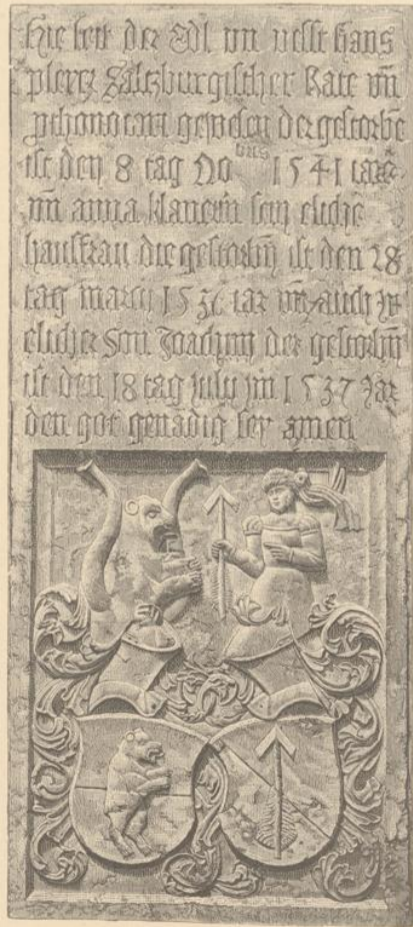 hie leit der Edl un vesst hans
plerer Saltzburgischer Rate vn̄
gewesen der gestorbē
ist den 8 tag No bris 1541 iar
vn̄ anna klanerin sein elichē
hausfrau die gestorbn̄ ist den 28
tag marcii 1536 iar vn̄ auch yr
elicher Son Joachim der gestorbn̄
ist den 18 tag July im 1537 Jar
den got genadig sey amen